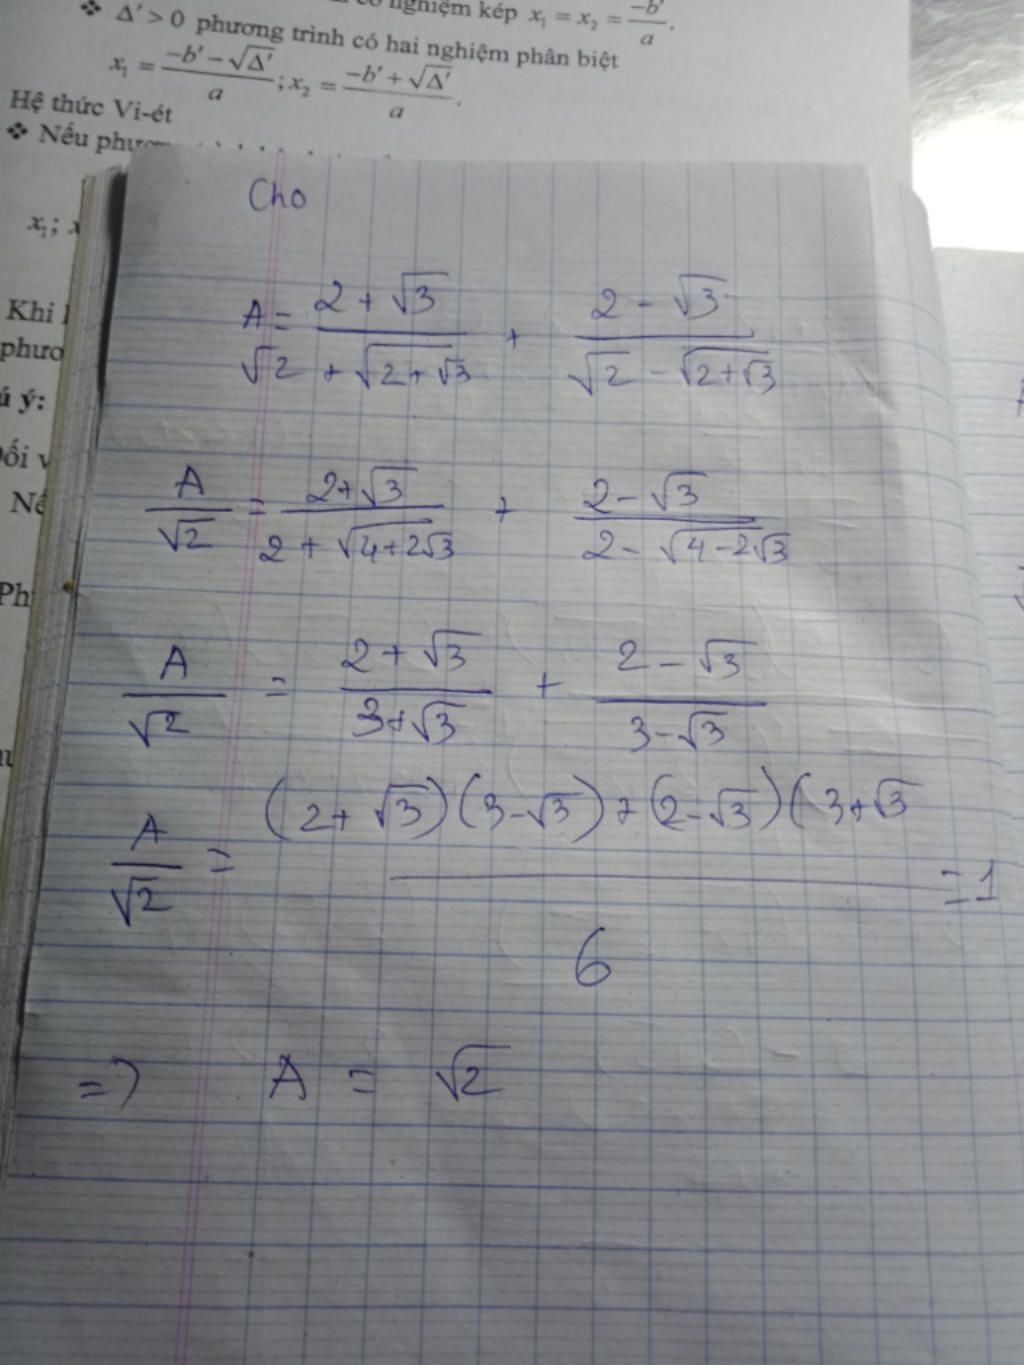 nghiệm kép x₁ = x₂ = -b'/a.
❖ Δ' > 0 phương trình có hai nghiệm phân biệt
x₁ = (-b' - √Δ')/a ; x₂ = (-b' + √Δ')/a.
Hệ thức Vi-ét
❖ Nếu
x₁;
Khi
ý:
Cho
A = (2 + √3)/(√2 + √(2+√3)) + (2 - √3)/(√2 - √(2+√3))
A/√2 = (2+√3)/(2 + √(4+2√3)) + (2-√3)/(2 - √(4-2√3))
A/√2 = (2+√3)/(3+√3) + (2-√3)/(3-√3)
A/√2 = ((2+√3)(3-√3)+(2-√3)(3+√3)/6 = 1
=> A = √2